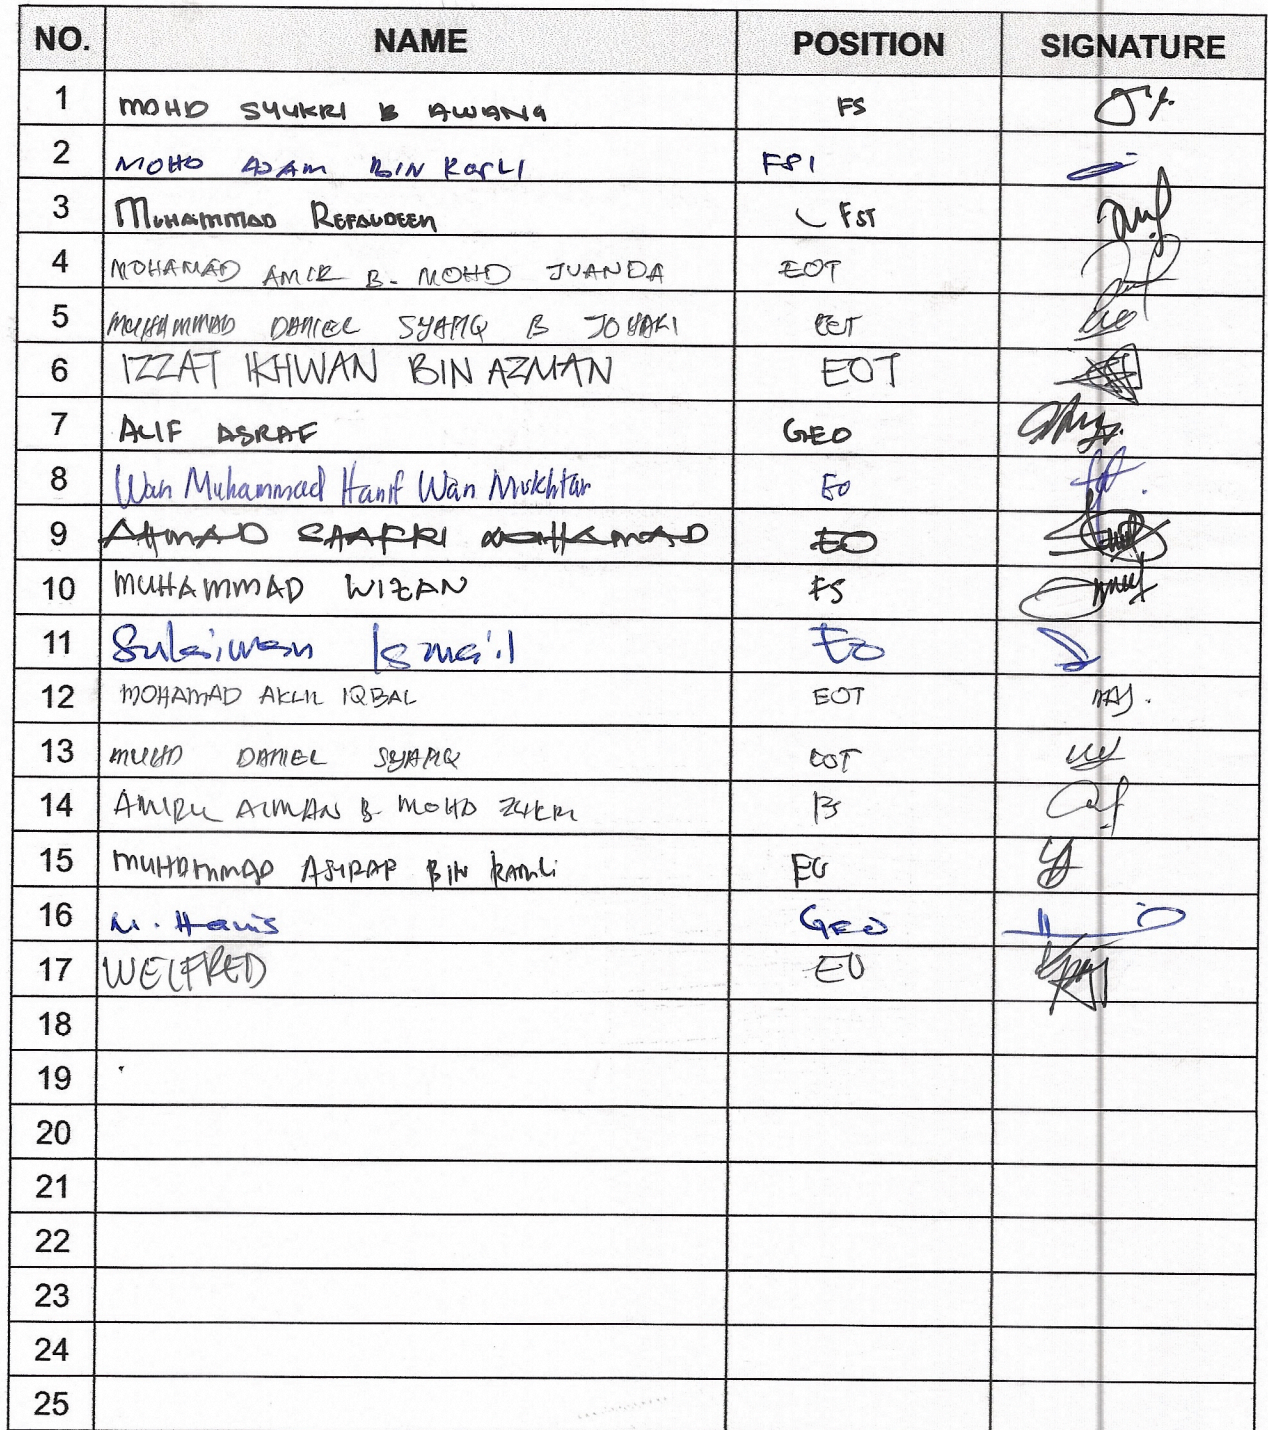 NO. NAME POSITION SIGNATURE
1 MOHD SYUKRI B AWANG FS
2 MOHD ADAM BIN ROSLI FSI
3 MUHAMMAD REFAUDEEN FST
4 MOHAMAD AMIR B. MOHD JUANDA EOT
5 MUHAMMAD DANIEL SYAFIQ B JOHARI EOT
6 IZZAT IKHWAN BIN AZMAN EOT
7 ALIF ASRAF GEO
8 Wan Muhammad Hanif Wan Mukhtar EO
9 AHMAD SAAFRI EO
10 MUHAMMAD WIZAN FS
11 Sulaiman Ismail EO
12 MOHAMAD AKLIL IQBAL EOT
13 MUHD DANIEL SYAFIQ EOT
14 AMIRUL AIMAN B. MOHD ZUKRI FS
15 MUHAMMAD ASYRAF BIN RAMLI EO
16 M. Hanis GEO
17 WELFRED EO
18
19
20
21
22
23
24
25